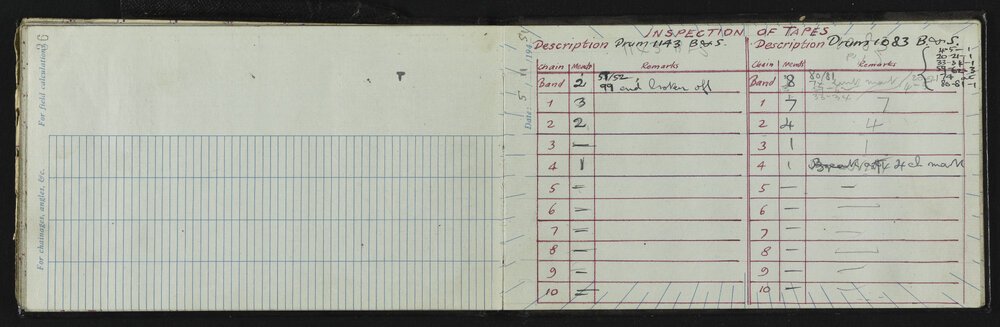 For field calculations
36
For chainages, angles, &c.
T
Date: 5 11 1945
INSPECTION OF TAPES
Description Drum 1143 B & S.
Chain Mends Remarks
Band 2 58/52
99 end broken off
1 3
2 2
3 —
4 1
5 —
6 —
7 —
8 —
9 —
10 —
Description Drum 1083 B & S.
Chain Mends Remarks
Band 8 80/81
33-34
20-21-1
33-34-1
80-81-1
1 7 7
2 4 4
3 1 1
4 1 4 ch mark
5 — —
6 — —
7 — —
8 — —
9 — —
10 —